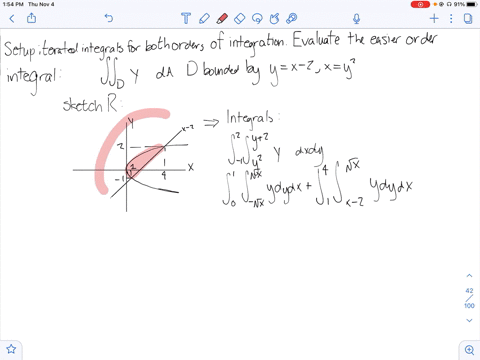 1:54 PM Thu Nov 4
91%
Setup iterated integrals for both orders of integration. Evaluate the easier order
integral: ∬_D y dA D bounded by y = x-2, x = y²
sketch R:
⇒ Integrals:
y
x-2
2
x
-1
1
4
∫_{-1}^{2} ∫_{y²}^{y+2} y dxdy
∫_0^1 ∫_{-√x}^{√x} y dy dx + ∫_1^4 ∫_{x-2}^{√x} y dy dx
42
100